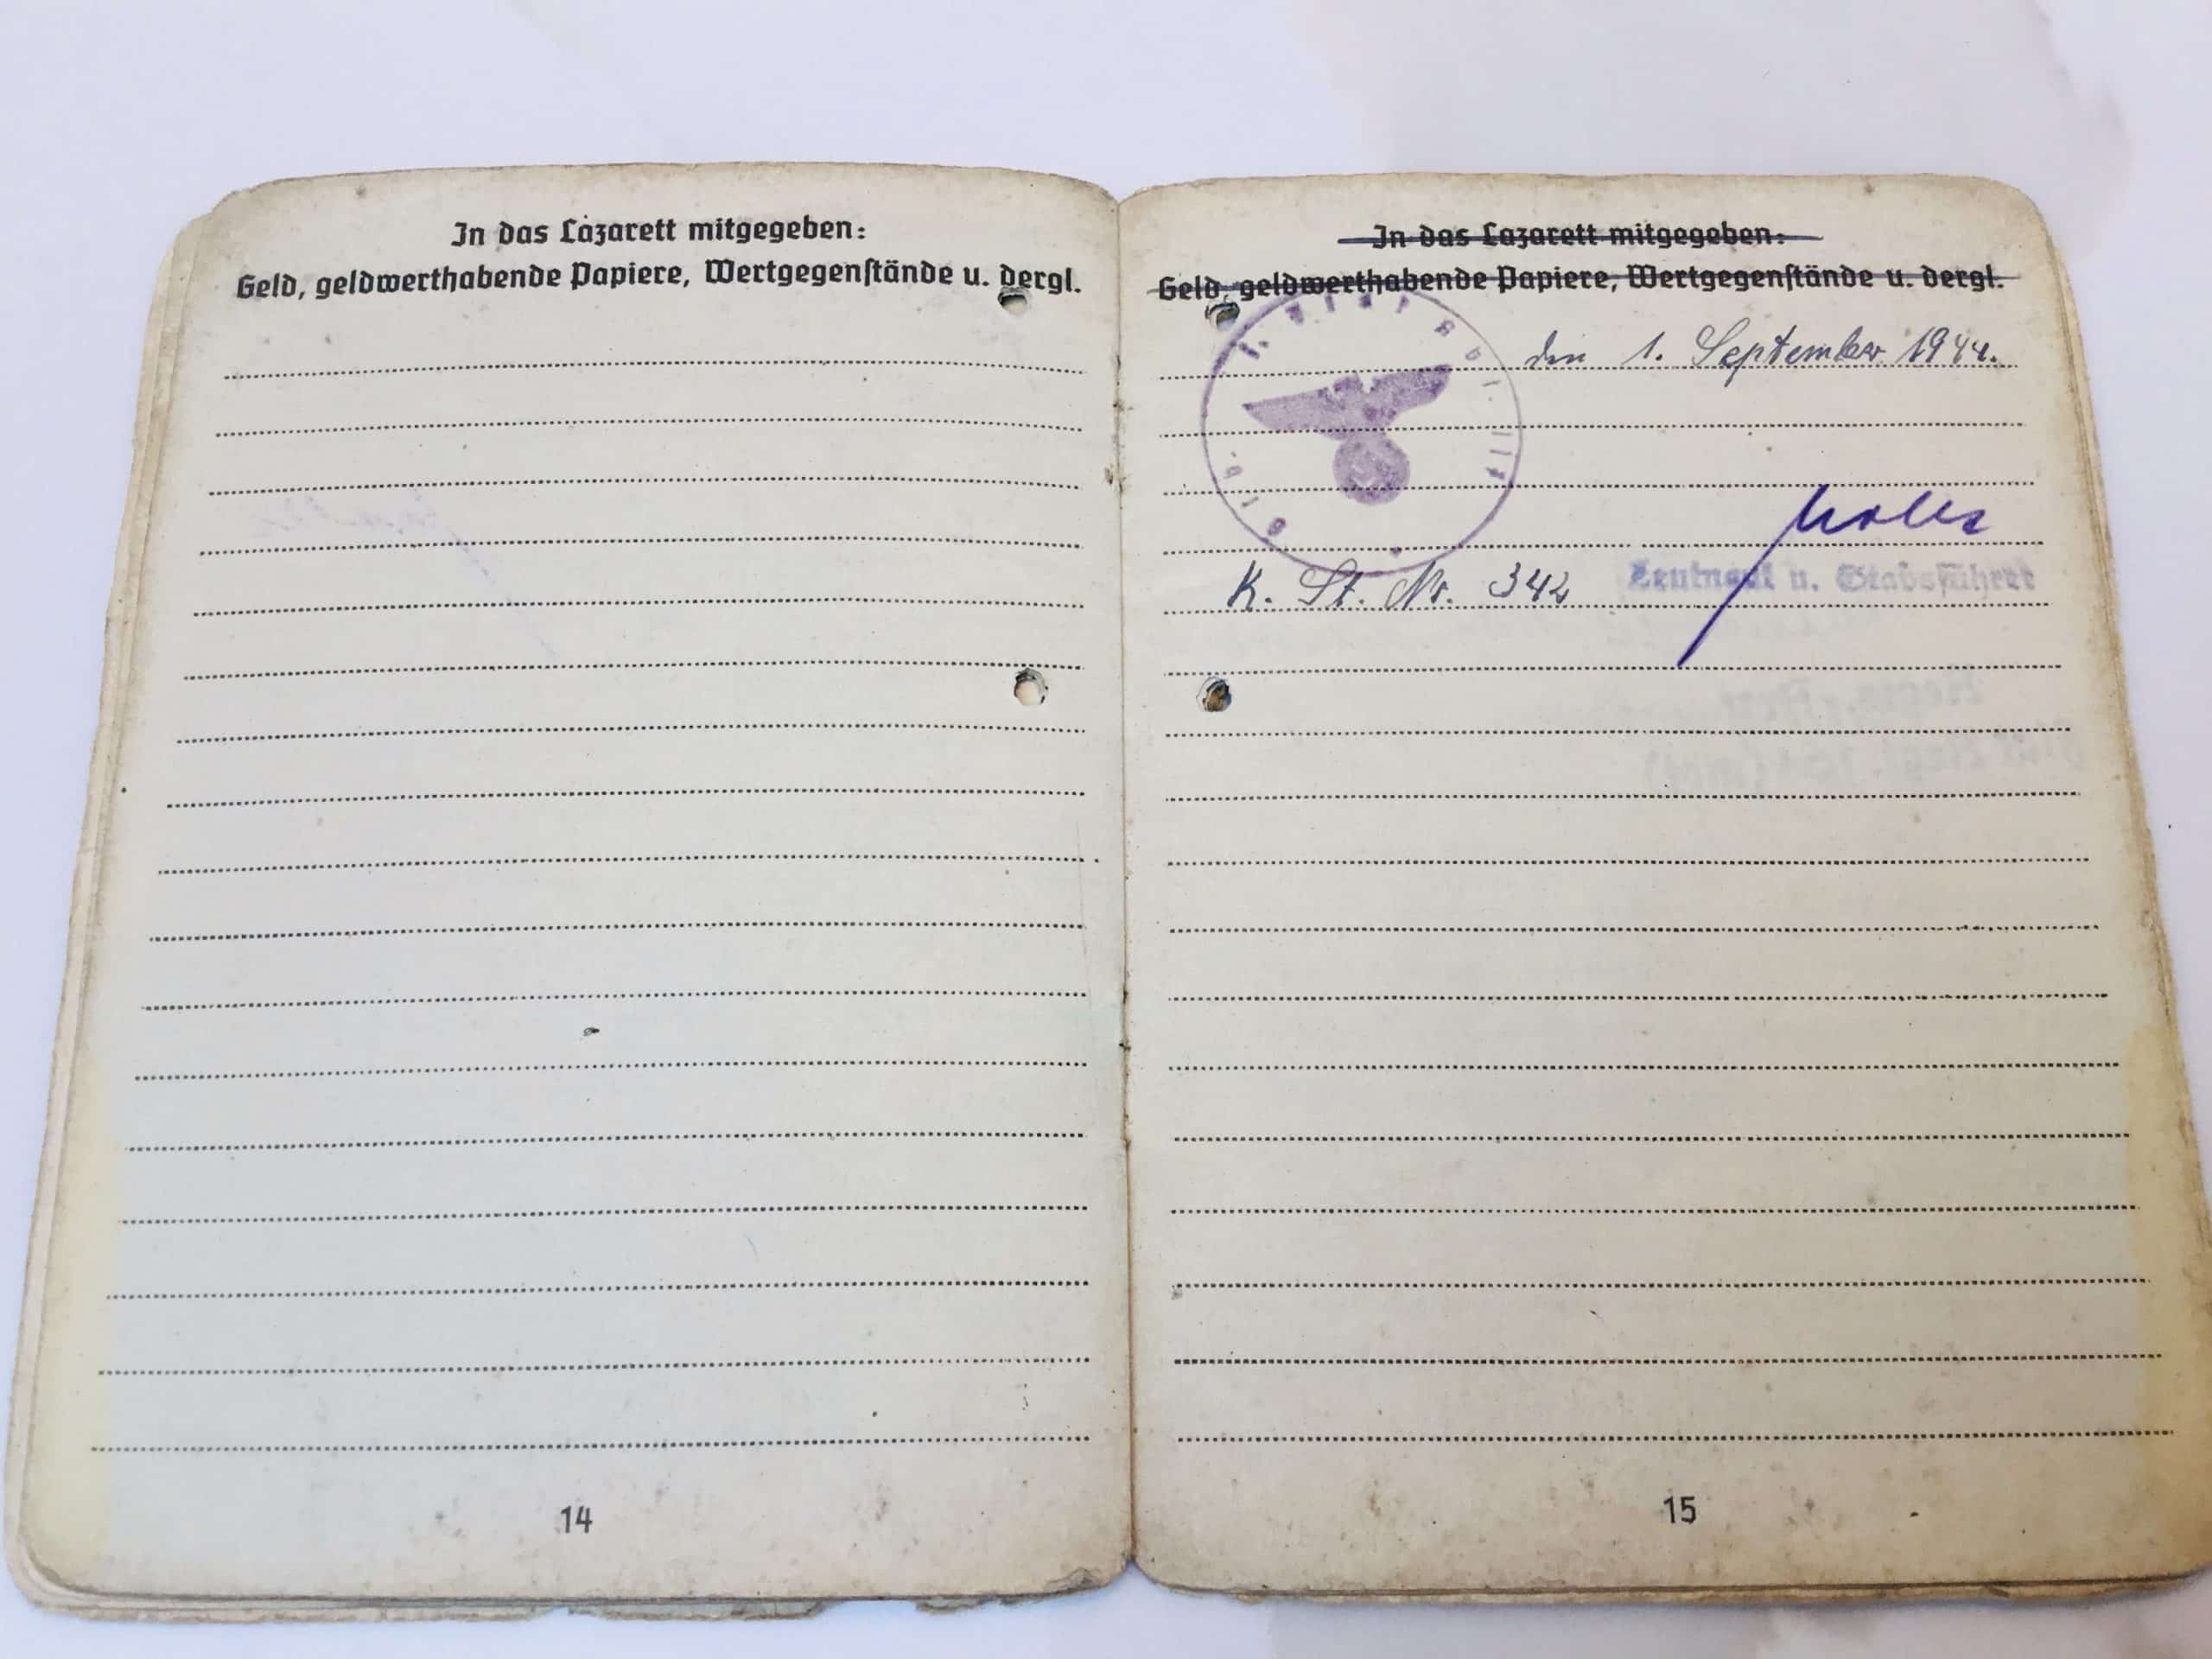 In das Lazarett mitgegeben:
Geld, geldwerthabende Papiere, Wertgegenstände u. dergl.
14
In das Lazarett mitgegeben:
Geld, geldwerthabende Papiere, Wertgegenstände u. dergl.
den 1. September 1944.
K. St. Nr. 342
Leutnant u. Stabsführer
15